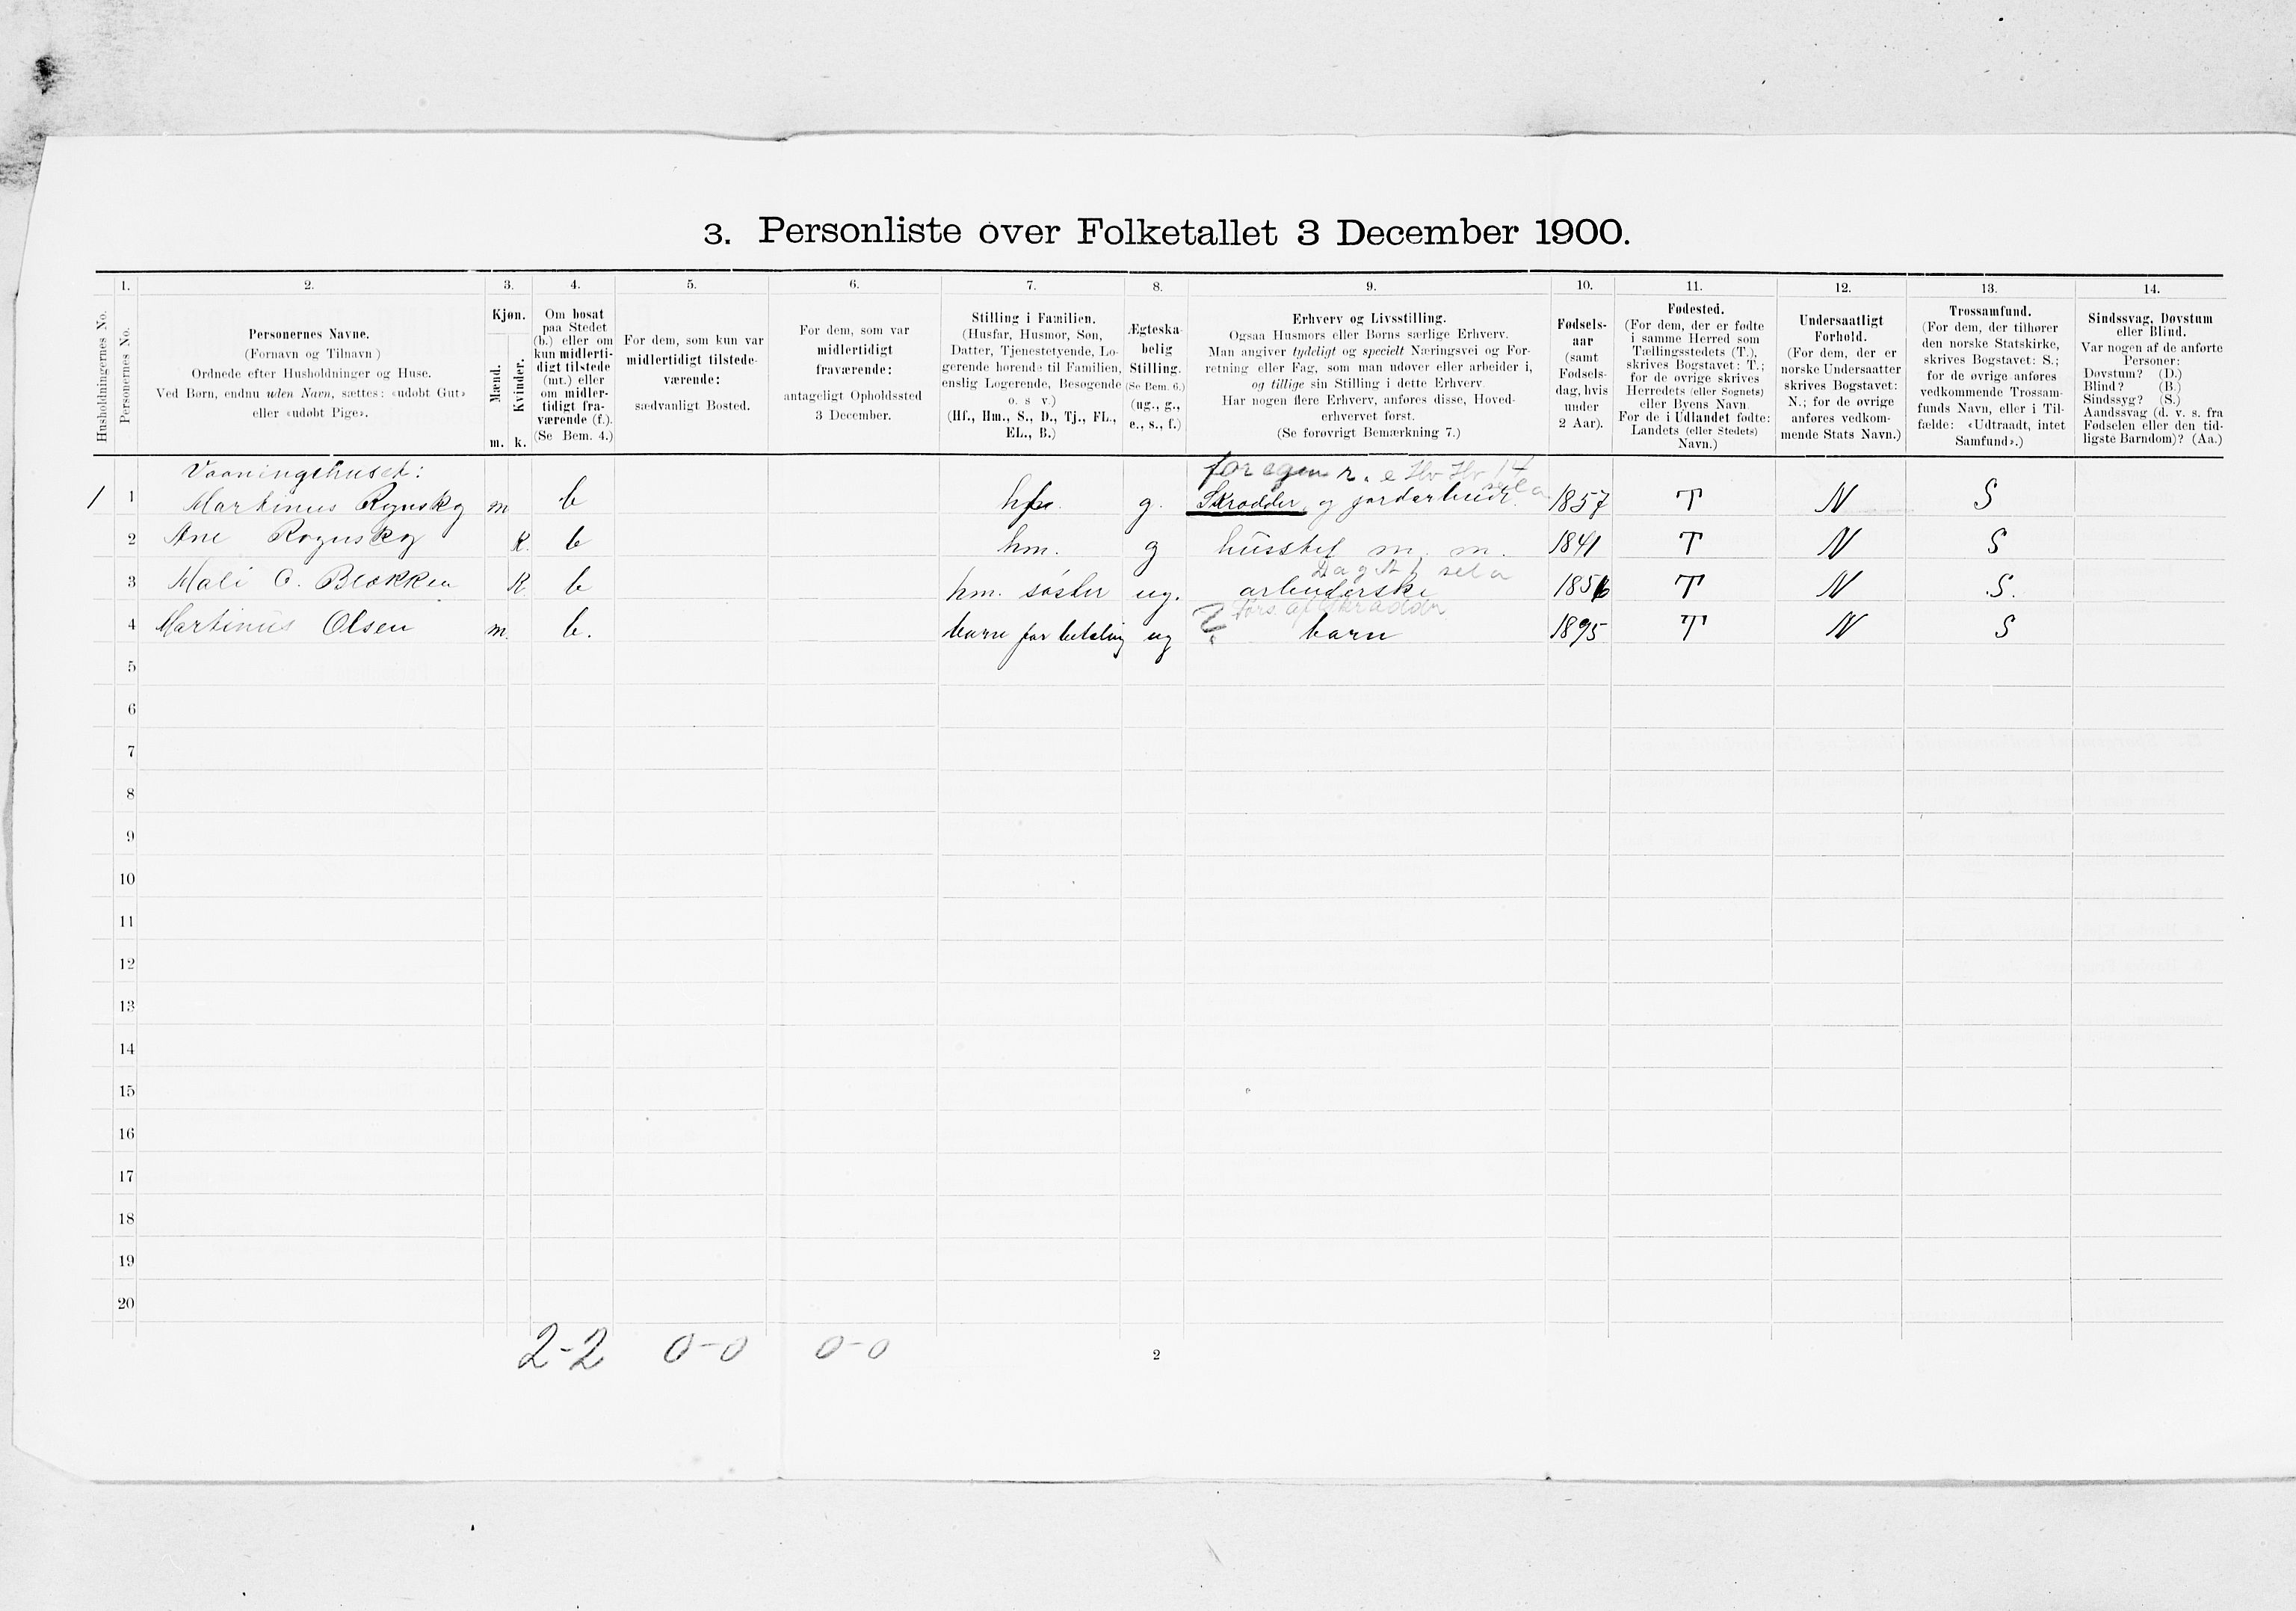 3. Personliste over Folketallet 3 December 1900.
1. 2. 3. 4. 5. 6. 7. 8. 9. 10. 11. 12. 13. 14.
Husholdningernes No.
Personernes No.
Personernes Navne.
(Fornavn og Tilnavn)
Ordnede efter Husholdninger og Huse.
Ved Børn, endnu uden Navn, sættes: «udøbt Gut»
eller «udøbt Pige».
Kjøn.
Mænd.
Kvinder.
m. k.
Om bosat
paa Stedet
(b.) eller om
kun midlerti-
digt tilstede
(mt.) eller
om midler-
tidigt fra-
værende (f.).
(Se Bem. 4.)
For dem, som kun var
midlertidigt tilstede-
værende:
sædvanligt Bosted.
For dem, som var
midlertidigt
fraværende:
antageligt Opholdssted
3 December.
Stilling i Familien.
(Husfar, Husmor, Søn,
Datter, Tjenestetyende, Lo-
gerende hørende til Familien,
enslig Logerende, Besøgende
o. s v.)
(Hf., Hm., S., D., Tj., FL.,
EL., B.)
Ægteska-
belig
Stilling.
(Se Bem. 6.)
(ug., g.,
e., s., f.)
Erhverv og Livsstilling.
Ogsaa Husmors eller Børns særlige Erhverv.
Man angiver tydeligt og specielt Næringsvei og For-
retning eller Fag, som man udøver eller arbeider i,
og tillige sin Stilling i dette Erhverv.
Har nogen flere Erhverv, anføres disse, Hoved-
erhvervet først.
(Se forøvrigt Bemærkning 7.)
Fødsels-
aar
(samt
Fødsels-
dag, hvis
under
2 Aar).
Fødested.
(For dem, der er fødte
i samme Herred som
Tællingsstedets (T.),
skrives Bogstavet: T.;
for de øvrige skrives
Herredets (eller Sognets)
eller Byens Navn.
For de i Udlandet fødte:
Landets (eller Stedets)
Navn.)
Undersaatligt
Forhold.
(For dem, der er
norske Undersaatter
skrives Bogstavet:
N.; for de øvrige
anføres vedkom-
mende Stats Navn.)
Trossamfund.
(For dem, der tilhører
den norske Statskirke,
skrives Bogstavet: S.;
for de øvrige anføres
vedkommende Trossam-
funds Navn, eller i Til-
fælde: «Udtraadt, intet
Samfund».)
Sindssvag, Døvstum
eller Blind.
Var nogen af de anførte
Personer:
Døvstum? (D.)
Blind? (B.)
Sindssyg? (S.)
Aandssvag (d. v. s. fra
Fødselen eller den tid-
ligste Barndom)? (Aa.)
Vaaningshuset: for egen r.
1 1 Martinus Rognskog m b hf. g. Skrædder og jordarbeide. 1857 T N S
2 Ane Rognskog K. b hm. g husstel m. m. 1841 T N S
3 Mali O. Blekken K b hm. søster ug. arbeiderske 1856 T N S.
Fors. af Skrædder
4 Martinus Olsen m. b. barn for betaling ug barn 1895 T N S
5
6
7
8
9
10
11
12
13
14
15
16
17
18
19
20
2-2 0-0 0-0
2